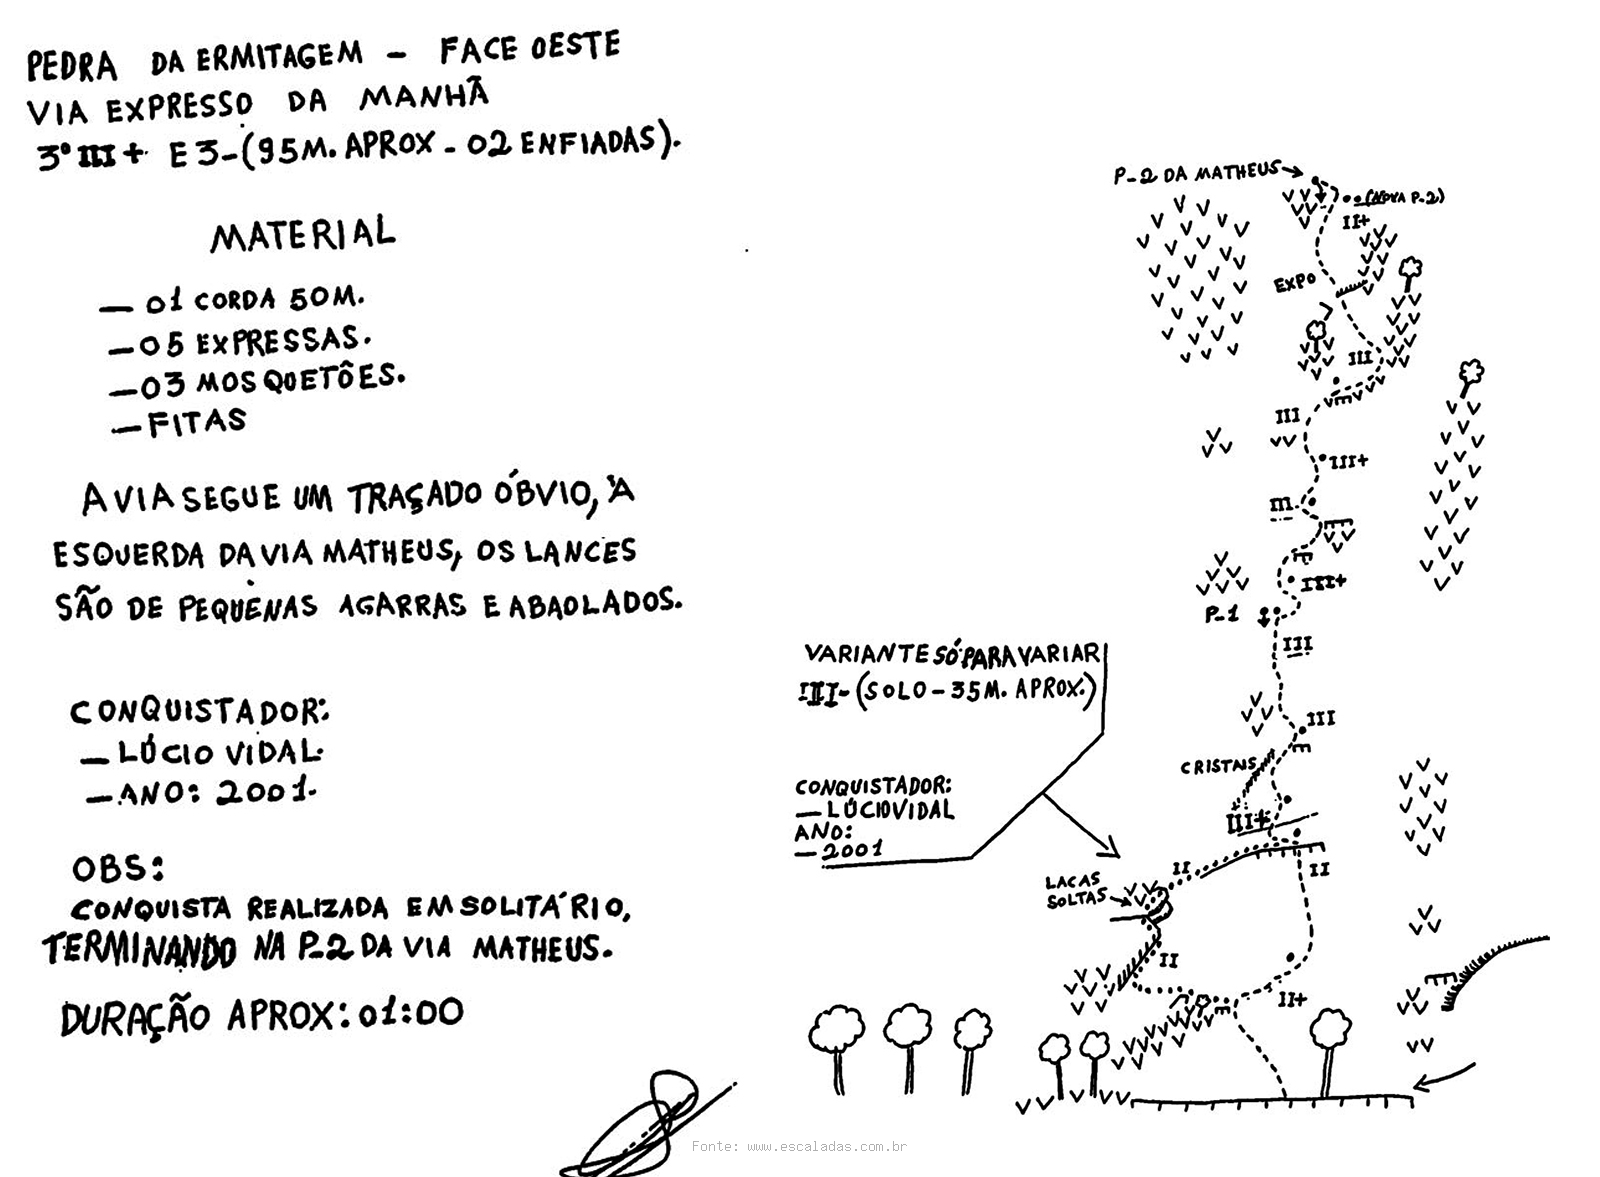 PEDRA DA ERMITAGEM - FACE OESTE
VIA EXPRESSO DA MANHÃ
3º III+ E3-(95M. APROX - 02 ENFIADAS).
MATERIAL
- 01 CORDA 50M.
- 05 EXPRESSAS.
- 03 MOSQUETÕES.
- FITAS
A VIA SEGUE UM TRAÇADO ÓBVIO, À
ESQUERDA DA VIA MATHEUS, OS LANCES
SÃO DE PEQUENAS AGARRAS E ABAOLADOS.
CONQUISTADOR:
- LÚCIO VIDAL.
- ANO: 2001.
OBS:
CONQUISTA REALIZADA EM SOLITÁRIO,
TERMINANDO NA P-2 DA VIA MATHEUS.
DURAÇÃO APROX: 01:00
P-2 DA MATHEUS
(NOVA P-2)
II+
EXPO
III
III
III+
III
III+
P-1
III
III
CRISTAIS
III+
VARIANTE SÓ PARA VARIAR
III-(SOLO-35M. APROX.)
CONQUISTADOR:
- LÚCIO VIDAL
ANO:
- 2001
II
II
LACAS
SOLTAS
II
II+
Fonte: www.escaladas.com.br